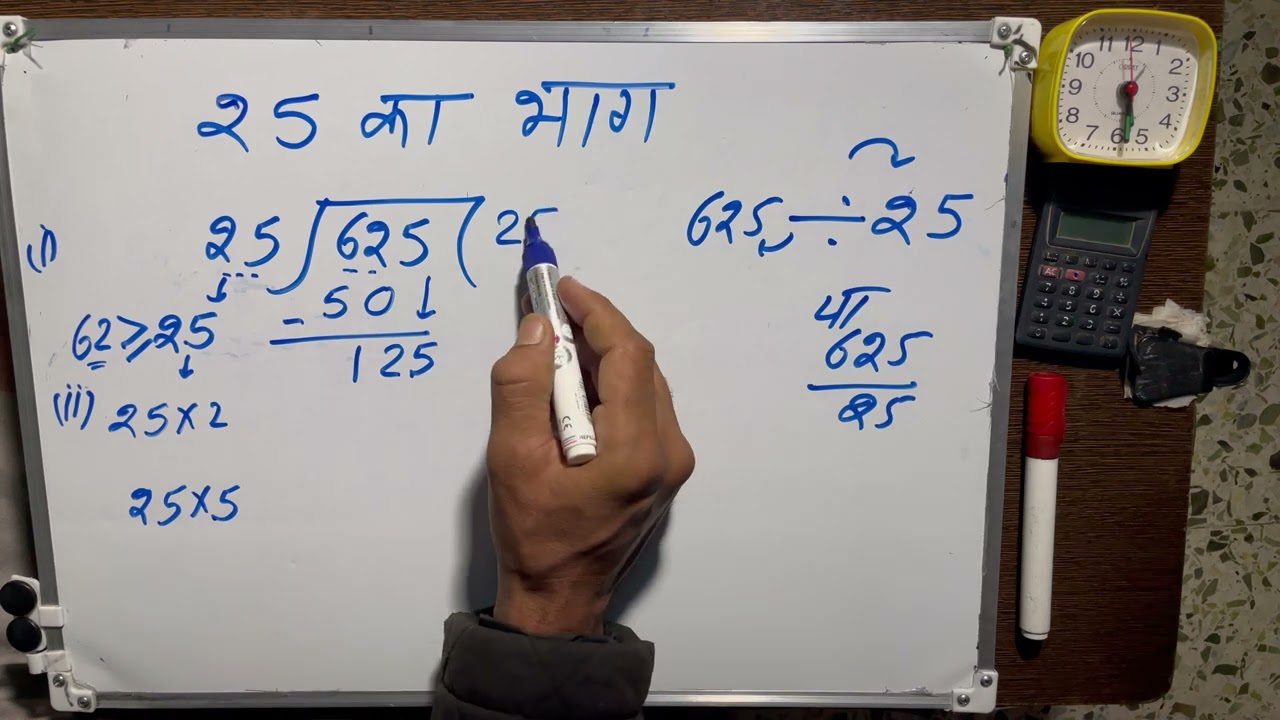 25 का भाग
625 ÷ 25
(i) 25 625 25
- 50
62 ≥ 25 125
(ii) 25×2
25×5
या
625
25
11 12 1
10 2
9 3
8 4
7 6 5
AC